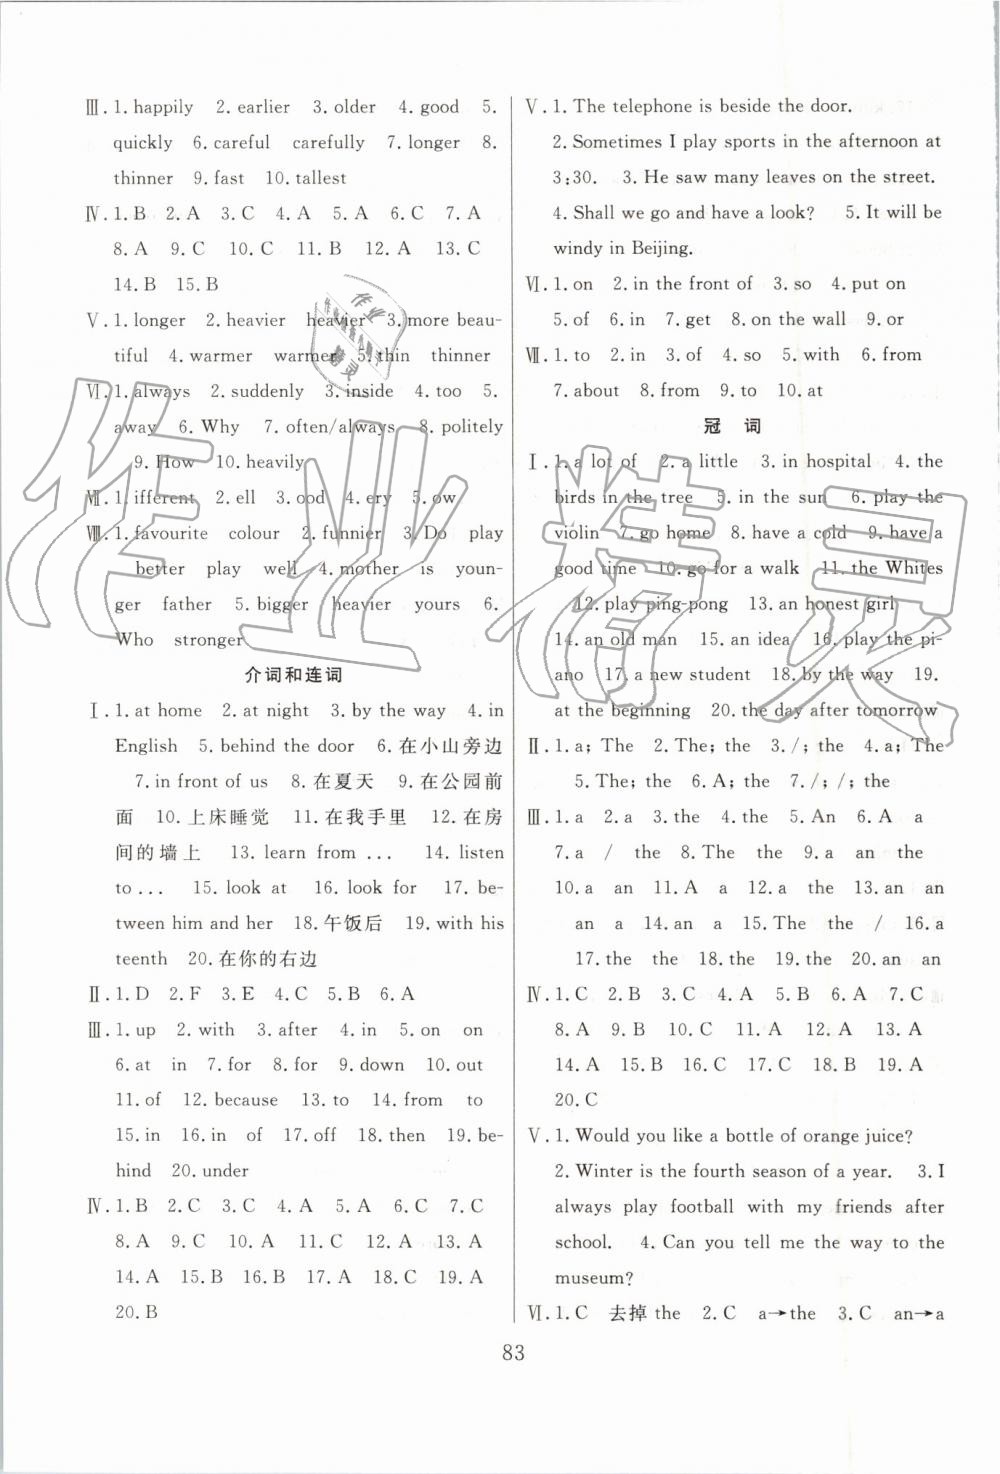 Ⅲ. 1. happily 2. earlier 3. older 4. good 5.
quickly 6. careful carefully 7. longer 8.
thinner 9. fast 10. tallest
Ⅳ. 1. B 2. A 3. C 4. A 5. A 6. C 7. A
8. A 9. C 10. C 11. B 12. A 13. C
14. B 15. B
Ⅴ. 1. longer 2. heavier heavier 3. more beau-
tiful 4. warmer warmer 5. thin thinner
Ⅵ. 1. always 2. suddenly 3. inside 4. too 5.
away 6. Why 7. often/always 8. politely
9. How 10. heavily
Ⅶ. 1. ifferent 2. ell 3. ood 4. ery 5. ow
Ⅷ. 1. favourite colour 2. funnier 3. Do play
better play well 4. mother is youn-
ger father 5. bigger heavier yours 6.
Who stronger
介词和连词
Ⅰ. 1. at home 2. at night 3. by the way 4. in
English 5. behind the door 6. 在小山旁边
7. in front of us 8. 在夏天 9. 在公园前
面 10. 上床睡觉 11. 在我手里 12. 在房
间的墙上 13. learn from ... 14. listen
to ... 15. look at 16. look for 17. be-
tween him and her 18. 午饭后 19. with his
teenth 20. 在你的右边
Ⅱ. 1. D 2. F 3. E 4. C 5. B 6. A
Ⅲ. 1. up 2. with 3. after 4. in 5. on on
6. at in 7. for 8. for 9. down 10. out
11. of 12. because 13. to 14. from to
15. in 16. in of 17. off 18. then 19. be-
hind 20. under
Ⅳ. 1. B 2. C 3. C 4. A 5. A 6. C 7. C
8. A 9. C 10. A 11. C 12. A 13. A
14. A 15. B 16. B 17. A 18. C 19. A
20. B
Ⅴ. 1. The telephone is beside the door.
2. Sometimes I play sports in the afternoon at
3:30. 3. He saw many leaves on the street.
4. Shall we go and have a look? 5. It will be
windy in Beijing.
Ⅵ. 1. on 2. in the front of 3. so 4. put on
5. of 6. in 7. get 8. on the wall 9. or
Ⅶ. 1. to 2. in 3. of 4. so 5. with 6. from
7. about 8. from 9. to 10. at
冠 词
Ⅰ. 1. a lot of 2. a little 3. in hospital 4. the
birds in the tree 5. in the sun 6. play the
violin 7. go home 8. have a cold 9. have a
good time 10. go for a walk 11. the Whites
12. play ping-pong 13. an honest girl
14. an old man 15. an idea 16. play the pi-
ano 17. a new student 18. by the way 19.
at the beginning 20. the day after tomorrow
Ⅱ. 1. a; The 2. The; the 3. /; the 4. a; The
5. The; the 6. A; the 7. /; /; the
Ⅲ. 1. a 2. a 3. the 4. the 5. An 6. A a
7. a / the 8. The the 9. a an the
10. a an 11. A a 12. a the 13. an an
an a 14. an a 15. The the / 16. a
17. the the 18. the 19. the 20. an an
Ⅳ. 1. C 2. B 3. C 4. A 5. B 6. A 7. C
8. A 9. B 10. C 11. A 12. A 13. A
14. A 15. B 16. C 17. C 18. B 19. A
20. C
Ⅴ. 1. Would you like a bottle of orange juice?
2. Winter is the fourth season of a year. 3. I
always play football with my friends after
school. 4. Can you tell me the way to the
museum?
Ⅵ. 1. C 去掉 the 2. C a→the 3. C an→a
83
作业精灵